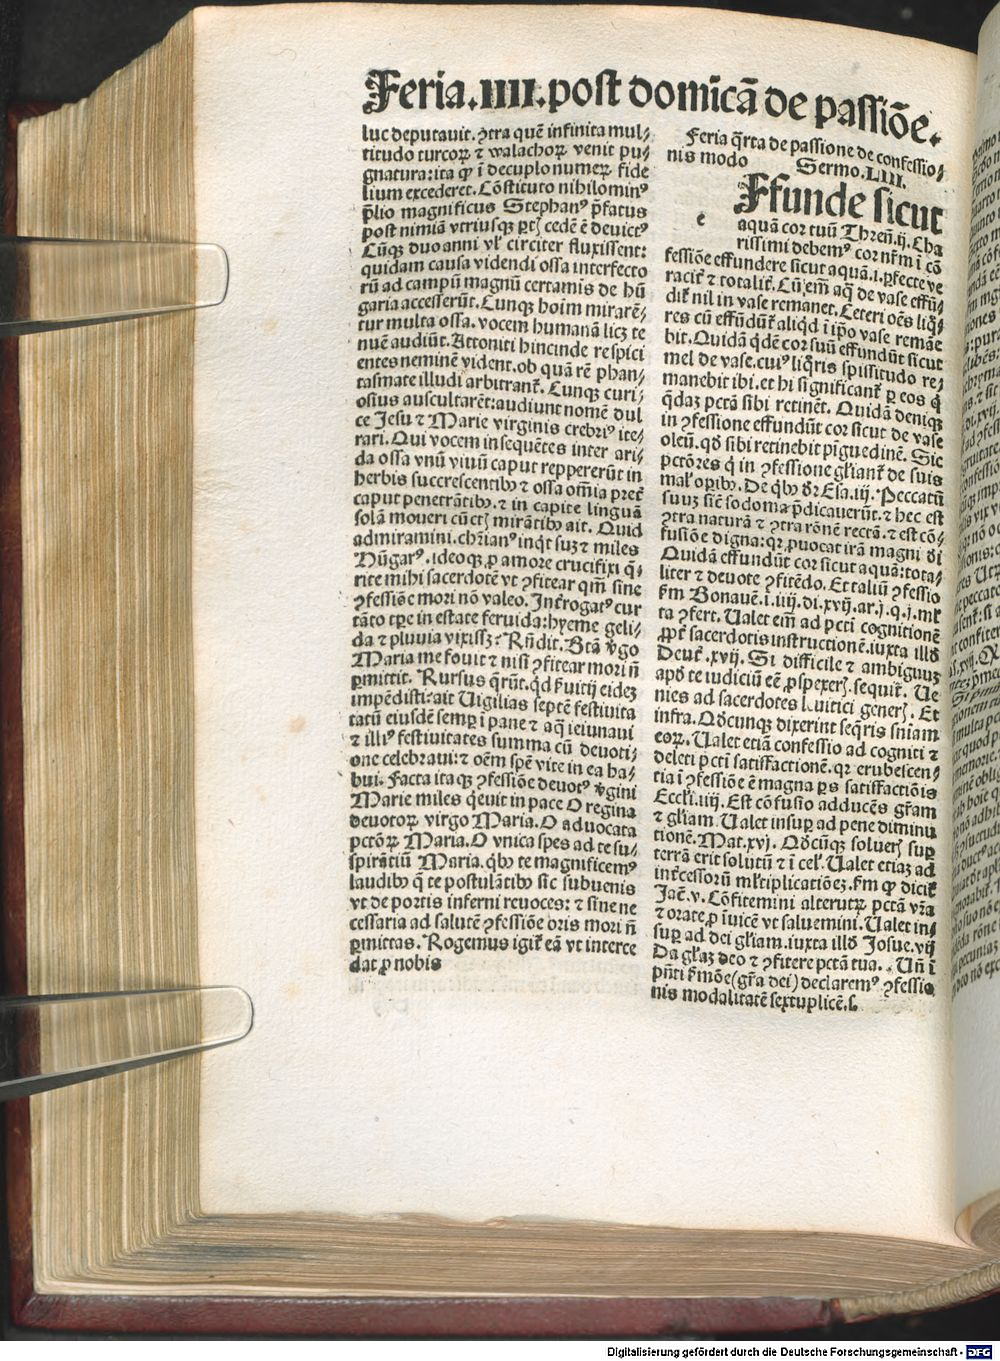 Feria.IIII.post domicā de passiōe.
luc deputauit. ꝯtra quē infinita mul⸗
titudo turcoꝝ ⁊ walachoꝝ venit pu⸗
gnatura: ita ꝙ ī decuplo numeꝝ fide
lium excederet. Cōstituto nihilominꝰ
p̄lio magnificus Stephanꝰ p̄fatus
post nimiā vtriusqꝫ ꝑtꝭ cedē ē deuictꝰ
Cūqꝫ duo anni vl̓ circiter fluxissent:
quidam causa videndi ossa interfecto
rū ad campū magnū certamis de hū
garia accesserūt. Cunqꝫ hoīm mirarē⸗
tur multa ossa. vocem humanā licꝫ te
nuē audiūt. Attoniti hincinde respici
entes neminē vident. ob quā rē phan⸗
tasmate illudi arbitrant̄. Cunqꝫ curi⸗
osius auscultarēt: audiunt nomē dul
ce Jesu ⁊ Marie virginis crebriꝰ ite⸗
rari. Qui vocem insequētes inter ari⸗
da ossa vnū viuū caput reppererūt in
herbis succrescentibꝰ ⁊ ossa om̄ia pret̄
caput penetrātibꝰ. ⁊ in capite linguā
solā moueri cū ctꝭ mirātibꝰ ait. Quid
admiramini. chr̄ianꝰ inq̄t suꝫ ⁊ miles
Hūgarꝰ. ideoqꝫ ꝓ amore crucifixi q̄⸗
rite mihi sacerdotē vt ꝯfitear qm̄ sine
ꝯfessiōe mori nō valeo. Int̄rogatꝰ cur
tāto tꝑe in estate feruida: hyeme geli⸗
da ⁊ pluuia vixissꝫ: Rn̄dit. Btā v̓go
Maria me fouit ⁊ nisi ꝯfitear mori n̄
ꝑmittit. Rursus q̄rūt. qd̓ ẜuitij eideꝫ
impēdisti: ait Uigilias septē festiuita
tatū eiusdē semꝑ ī pane ⁊ aq̄ ieiunaui
⁊ illiꝰ festiuitates summa cū deuoti⸗
one celebraui: ⁊ oēm spē vite in ea ha⸗
bui. Facta itaqꝫ ꝯfessiōe deuotꝰ v̓gini
Marie miles q̄euit in pace O regina
deuotoꝝ virgo Maria. O aduocata
pctōꝝ Maria. O vnica spes ad te su⸗
spirātiū Maria. qͥbꝰ te magnificemꝰ
laudibꝰ q̄ te postulātibꝰ sic subuenis
vt de portis inferni reuoces: ⁊ sine ne
cessaria ad salutē ꝯfessiōe oris mori n̄
ꝑmittas. Rogemus igit̄ eā vt interce
dat ꝓ nobis
Feria q̄rta de passione de confessio⸗
nis modo Sermo.LIII.
e Ffunde sicut
aquā cor tuū Thren̄.ij. Cha
rissimi debemꝰ cor nr̄m ī cō
fessiōe effundere sicut aquā. i. ꝑfecte ve
racit̄ ⁊ totalit̄. Cū em̄ aq̄ de vase effū⸗
dit̄ nil in vase remanet. Ceteri oēs liq̄⸗
res cū effūdūt̄ aliqd̓ ī ip̄o vase remāe
bit. Quidā qͥdē cor suū effundūt sicut
mel de vase. cuiꝰ liq̄ris spissitudo re⸗
manebit ibi. et hi significant̄ ꝑ eos qͥ
q̄daꝫ pctā sibi retinēt. Quidā deniqꝫ
in ꝯfessione effundūt cor sicut de vase
oleū. qd̓ sibi retinebit pīguedinē. Sic
pctōres qͥ in ꝯfessione gl̓iant̄ de suis
mal̓ oꝑibꝰ. De qͥbꝰ dr̄ Esa.iij. Peccatū
suuꝫ sic̄ sodoma p̄dicauerūt. ⁊ hec est
ꝯtra naturā ⁊ ꝯtra rōnē rectā. ⁊ est cō⸗
fusiōe digna: qꝛ ꝓuocat irā magni dī
Quidā effundūt cor sicut aquā: tota⸗
liter ⁊ deuote ꝯfitēdo. Et taliū ꝯfessio
ẜm Bonauē. i. iiij. di. xvij. ar. j. q. j. ml̄t
ta ꝯfert. Ualet em̄ ad pcti cognitionē
ꝓpt̄ sacerdotis instructionē. iuxta illd̓
Deut̄.xvij. Si difficile ⁊ ambiguuꝫ
apd̓ te iudiciū eē ꝓspexerꝭ. sequit̄. Ue
nies ad sacerdotes leuitici generꝭ. Et
infra. Qd̓cunqꝫ dixerint seq̄ris sn̄iam
eoꝝ. Ualet etiā confessio ad cogniti ⁊
deleti pcti satisfactionē. qꝛ erubescen⸗
tia ī ꝯfessiōe ē magna ꝑs satisfactiōis
Eccl̓i.iiij. Est cōfusio adducēs gr̄am
⁊ gl̓iam. Ualet insuꝑ ad pene diminu
tionē. Mat.xvj. Qd̓cūqꝫ soluerꝭ suꝑ
terrā erit solutū ⁊ ī cel̓. Ualet etiaꝫ ad
int̄cessorū ml̓tiplicationēꝫ. ẜm ꝙ dicit̄
Jac̄.v. Cōfitemini alterutꝝ pctā vr̄a
⁊ orate ꝓ īuicē vt saluemini. Ualet in⸗
suꝑ ad dei gl̓iam. iuxta illd̓ Josue.vij
Da gl̓iaꝫ deo ⁊ ꝯfitere pctā tua. Un̄ ī
pn̄ti ẜmōe (gr̄a dei) declaremꝰ ꝯfessio
nis modalitatē sextuplicē. s.
Digitalisierung gefördert durch die Deutsche Forschungsgemeinschaft - DFG